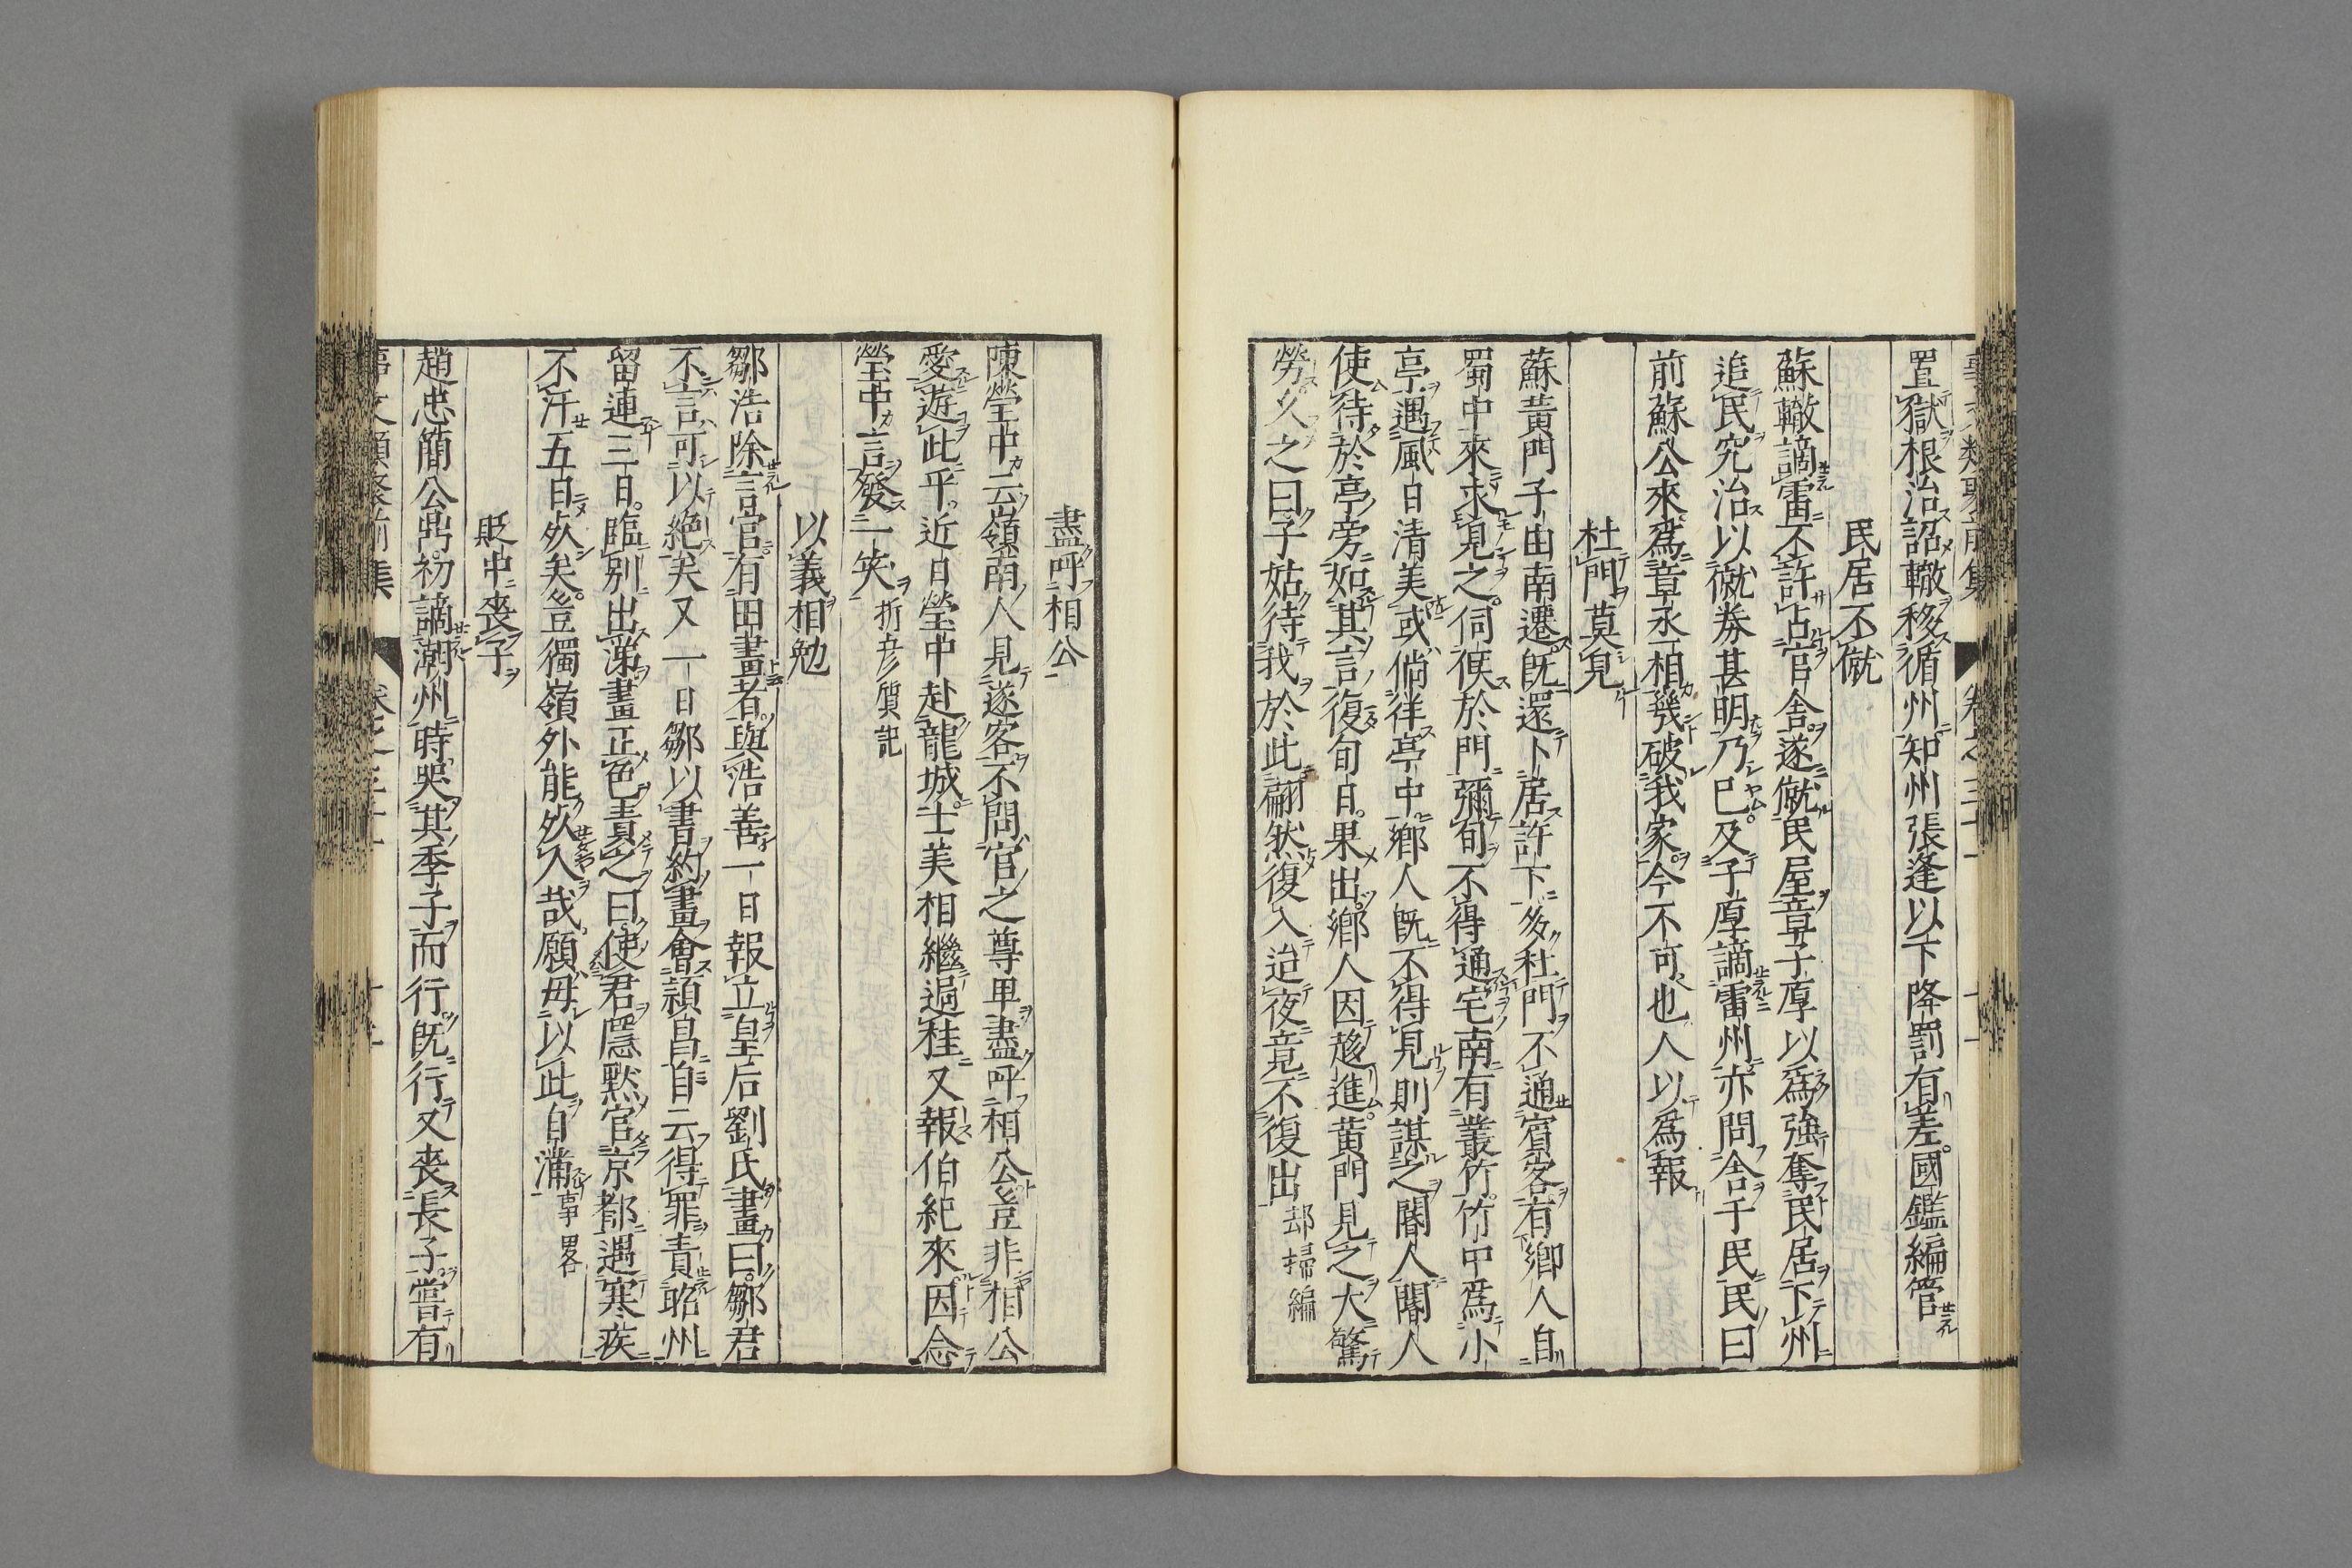 置獄根治詔轍移循州知州張逢以下降罰有差國鑑編管
民居不僦
蘇轍謫雷不許占官舍遂僦民屋章子厚以爲強奪民居下州
追民究治以僦券甚明乃已及子厚謫雷州亦問舍于民民曰
前蘇公來爲章丞相幾破我家今不可也人以爲報
杜門莫見
蘇黃門子由南遷既還卜居許下多杜門不通賓客有鄉人自
蜀中來求見之伺候於門彌旬不得通宅南有叢竹竹中爲小
亭遇風日清美或徜徉亭中鄉人既不得見則謀之閽人閽人
使待於亭旁如其言復旬日果出鄉人因趍進黃門見之大驚
勞久之曰子姑待我於此翩然復入迨夜竟不復出 却掃編
盡呼相公
陳瑩中云嶺南人見逐客不問官之尊卑盡呼相公豈非相公
愛遊此乎近日瑩中赴龍城士美相繼過桂又報伯紀來因念
瑩中言發一笑 折彦質記
以義相勉
鄒浩除言官有田畫者與浩善一日報立皇后劉氏畫曰鄒君
不言可以絶矣又一日鄒以書約畫會潁昌自云得罪責昭州
留連三日臨別出涕畫正色責之曰使君隱黙官京都遇寒疾
不汗五日死矣豈獨嶺外能死人哉願毋以此自滿 事畧
貶中喪子
趙忠簡公鼎初謫潮州時哭其季子而行既行又喪長子嘗有